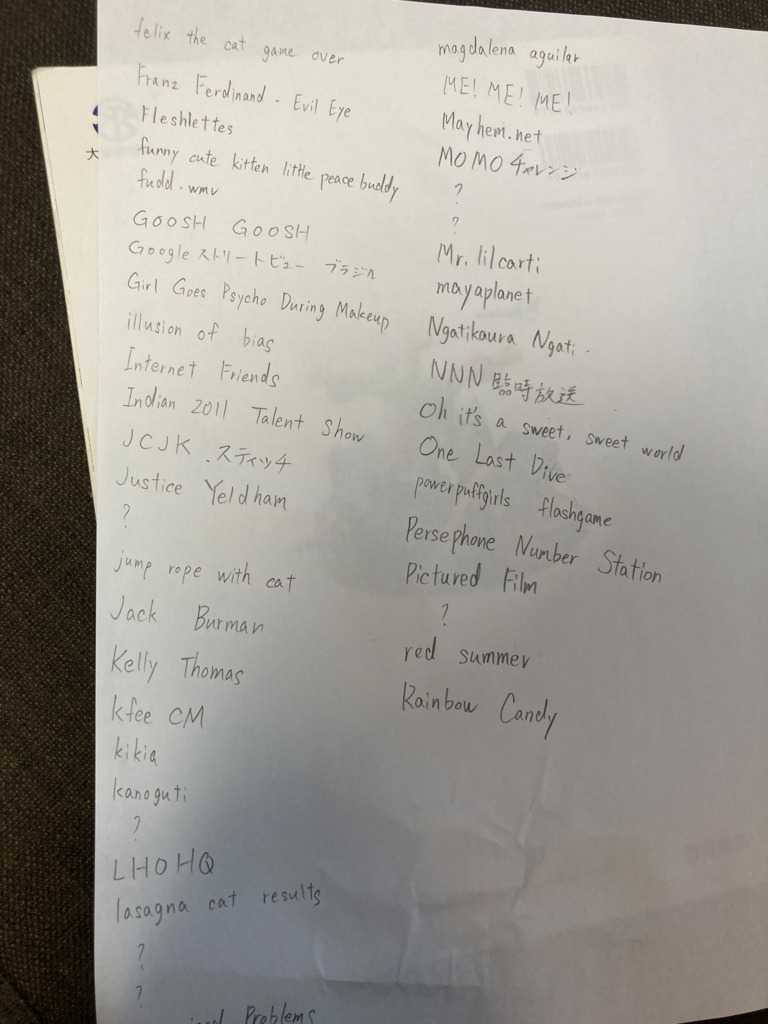 felix the cat game over
Franz Ferdinand - Evil Eye
Fleshlettes
funny cute kitten little peace buddy
fudd.wmv
GOOSH GOOSH
Google ストリートビュー ブラジル
Girl Goes Psycho During Makeup
illusion of bias
Internet Friends
Indian 2011 Talent Show
JCJK.スティッチ
Justice Yeldham
?
jump rope with cat
Jack Burman
Kelly Thomas
kfee CM
kikia
kanoguti
?
LHOHQ
lasagna cat results
?
?
Problems
magdalena aguilar
ME! ME! ME!
Mayhem.net
MOMOチャレンジ
?
?
Mr. lilcarti
mayaplanet
Ngatikaura Ngati.
NNN臨時放送
Oh it's a sweet, sweet world
One Last Dive
powerpuffgirls flashgame
Persephone Number Station
Pictured Film
?
red summer
Rainbow Candy
大